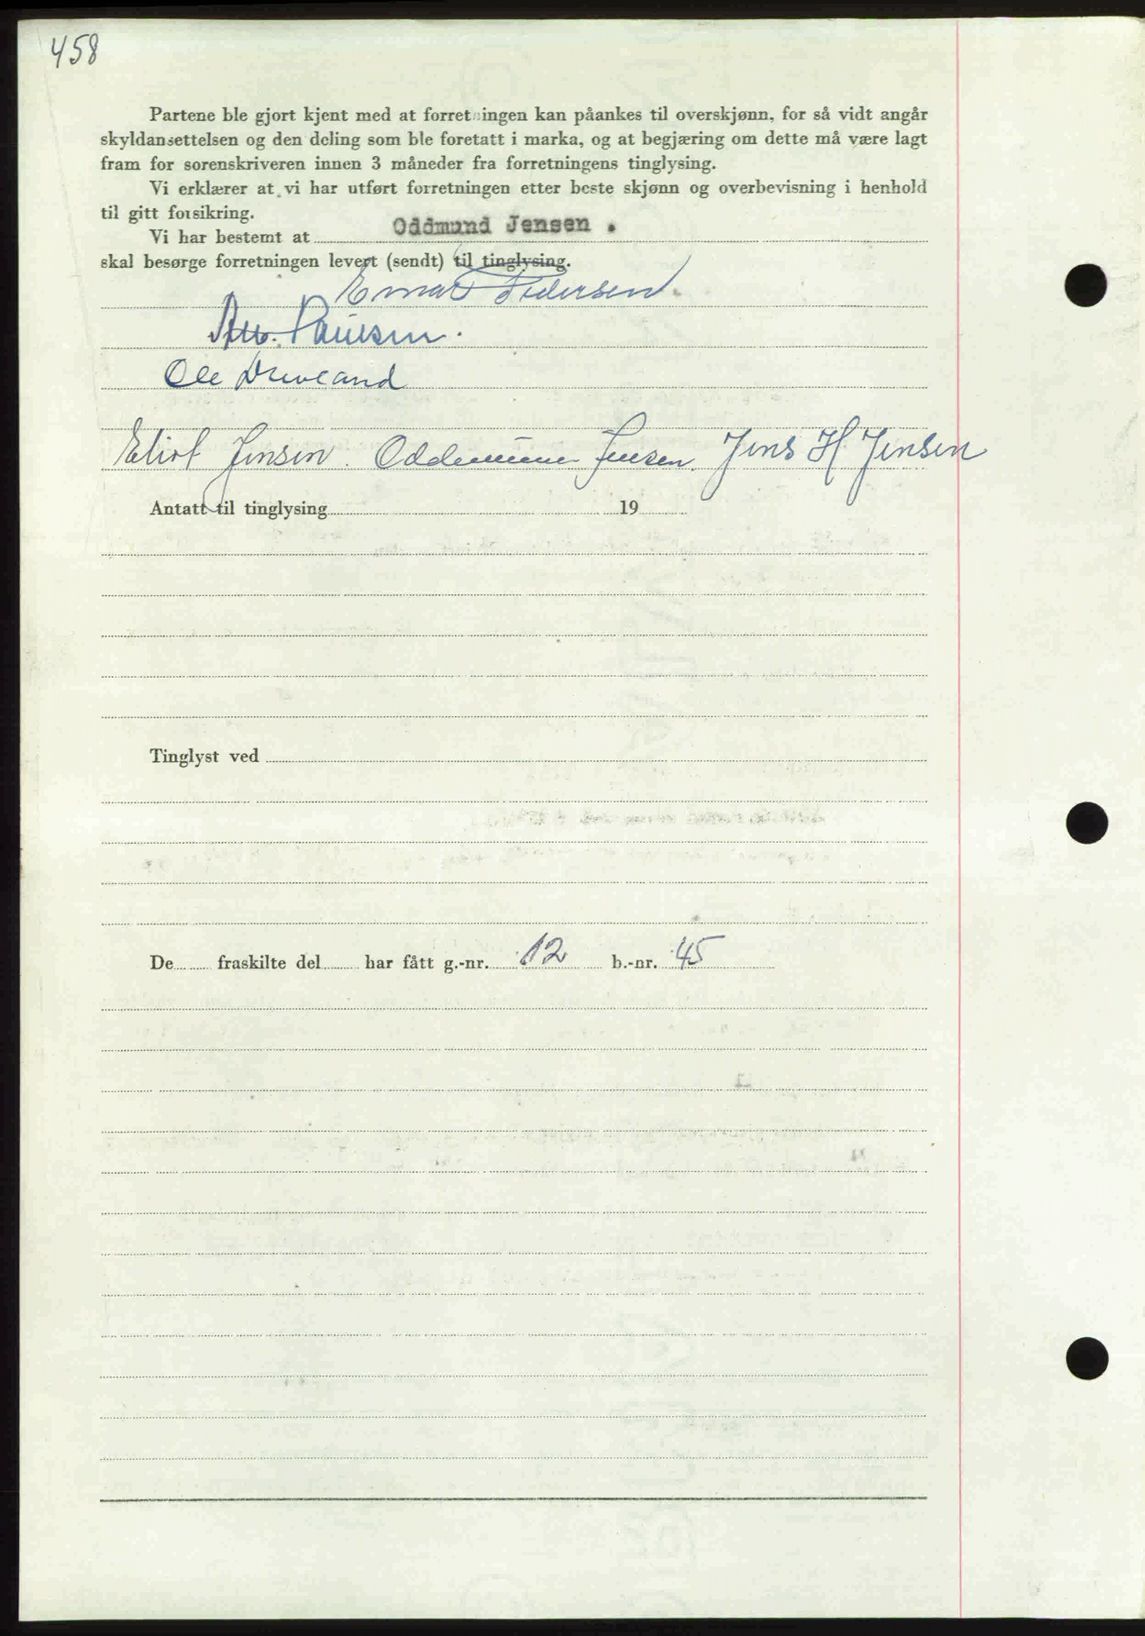 458
Partene ble gjort kjent med at forretningen kan påankes til overskjønn, for så vidt angår
skyldansettelsen og den deling som ble foretatt i marka, og at begjæring om dette må være lagt
fram for sorenskriveren innen 3 måneder fra forretningens tinglysing.
Vi erklærer at vi har utført forretningen etter beste skjønn og overbevisning i henhold
til gitt forsikring.
Vi har bestemt at Oddmund Jensen .
skal besørge forretningen levert (sendt) til tinglysing.
Einar Pedersen.
Paulsen.
Ole
Jensen. Oddmund Jensen. Jens H Jensen
Antatt til tinglysing 19
Tinglyst ved
De fraskilte del har fått g.-nr. 12 b.-nr. 45